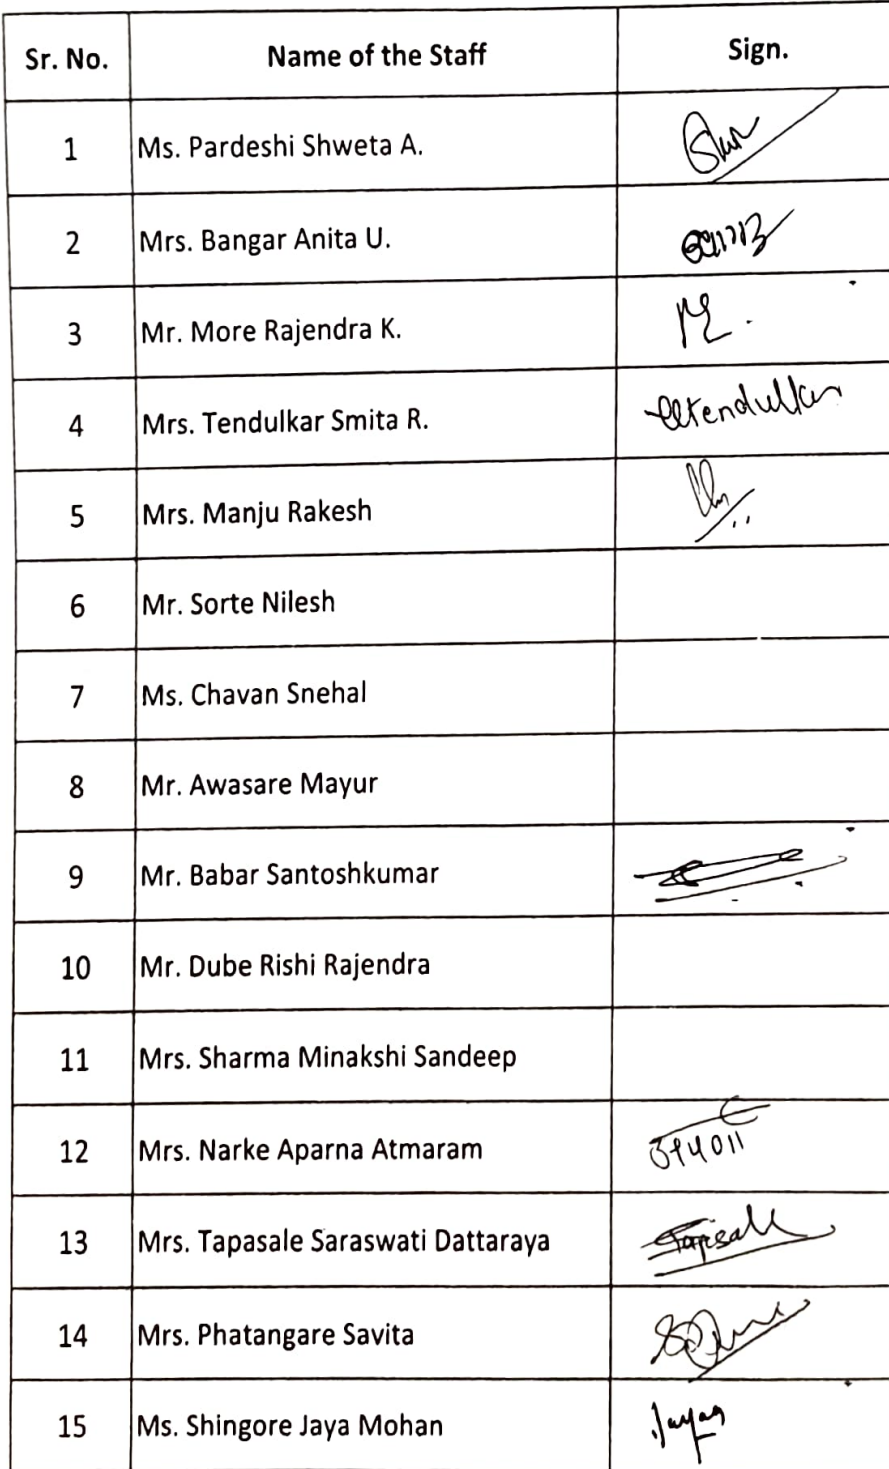 Sr. No. Name of the Staff Sign.
1 Ms. Pardeshi Shweta A.
2 Mrs. Bangar Anita U.
3 Mr. More Rajendra K.
4 Mrs. Tendulkar Smita R. Tendulkar
5 Mrs. Manju Rakesh
6 Mr. Sorte Nilesh
7 Ms. Chavan Snehal
8 Mr. Awasare Mayur
9 Mr. Babar Santoshkumar
10 Mr. Dube Rishi Rajendra
11 Mrs. Sharma Minakshi Sandeep
12 Mrs. Narke Aparna Atmaram
13 Mrs. Tapasale Saraswati Dattaraya
14 Mrs. Phatangare Savita
15 Ms. Shingore Jaya Mohan